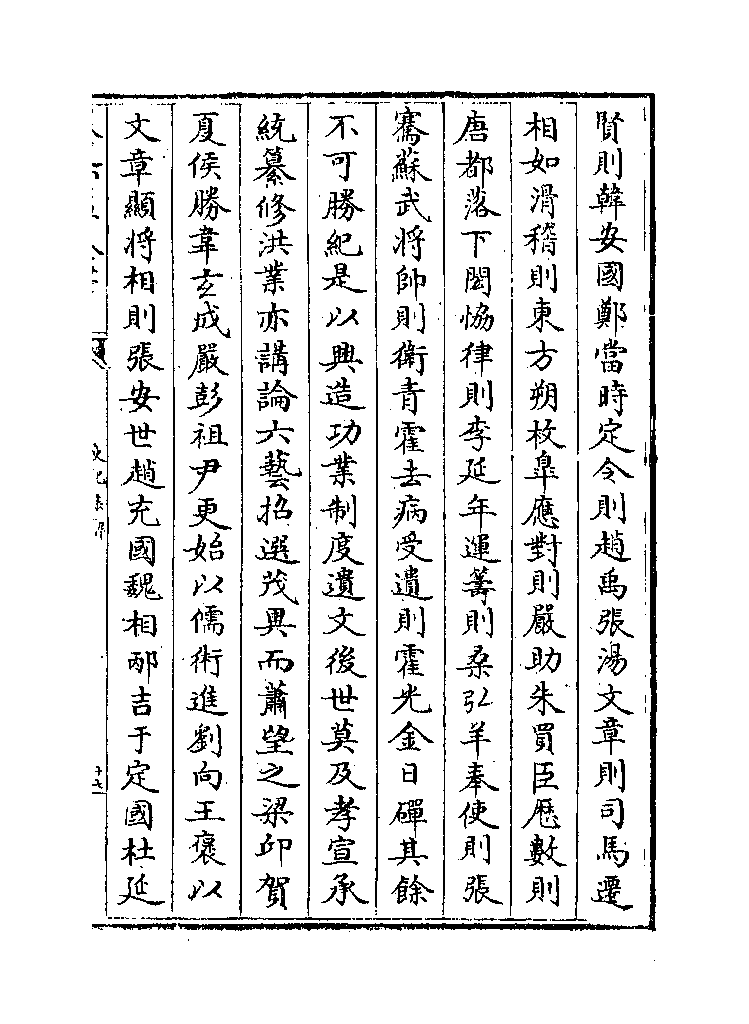 賢則韓安國鄭當時定令則趙禹張湯文章則司馬遷
相如滑稽則東方朔枚臯應對則嚴助朱買臣厯數則
唐都落下閎恊律則李延年運籌則桑弘羊奉使則張
騫蘇武將帥則衛青霍去病受遺則霍光金日磾其餘
不可勝紀是以興造功業制度遺文後世莫及孝宣承
統纂修洪業亦講論六藝招選茂異而蕭望之梁邱賀
夏侯勝韋玄成嚴彭祖尹更始以儒術進劉向王褒以
文章顯將相則張安世趙充國魏相邴吉于定國杜延
十七